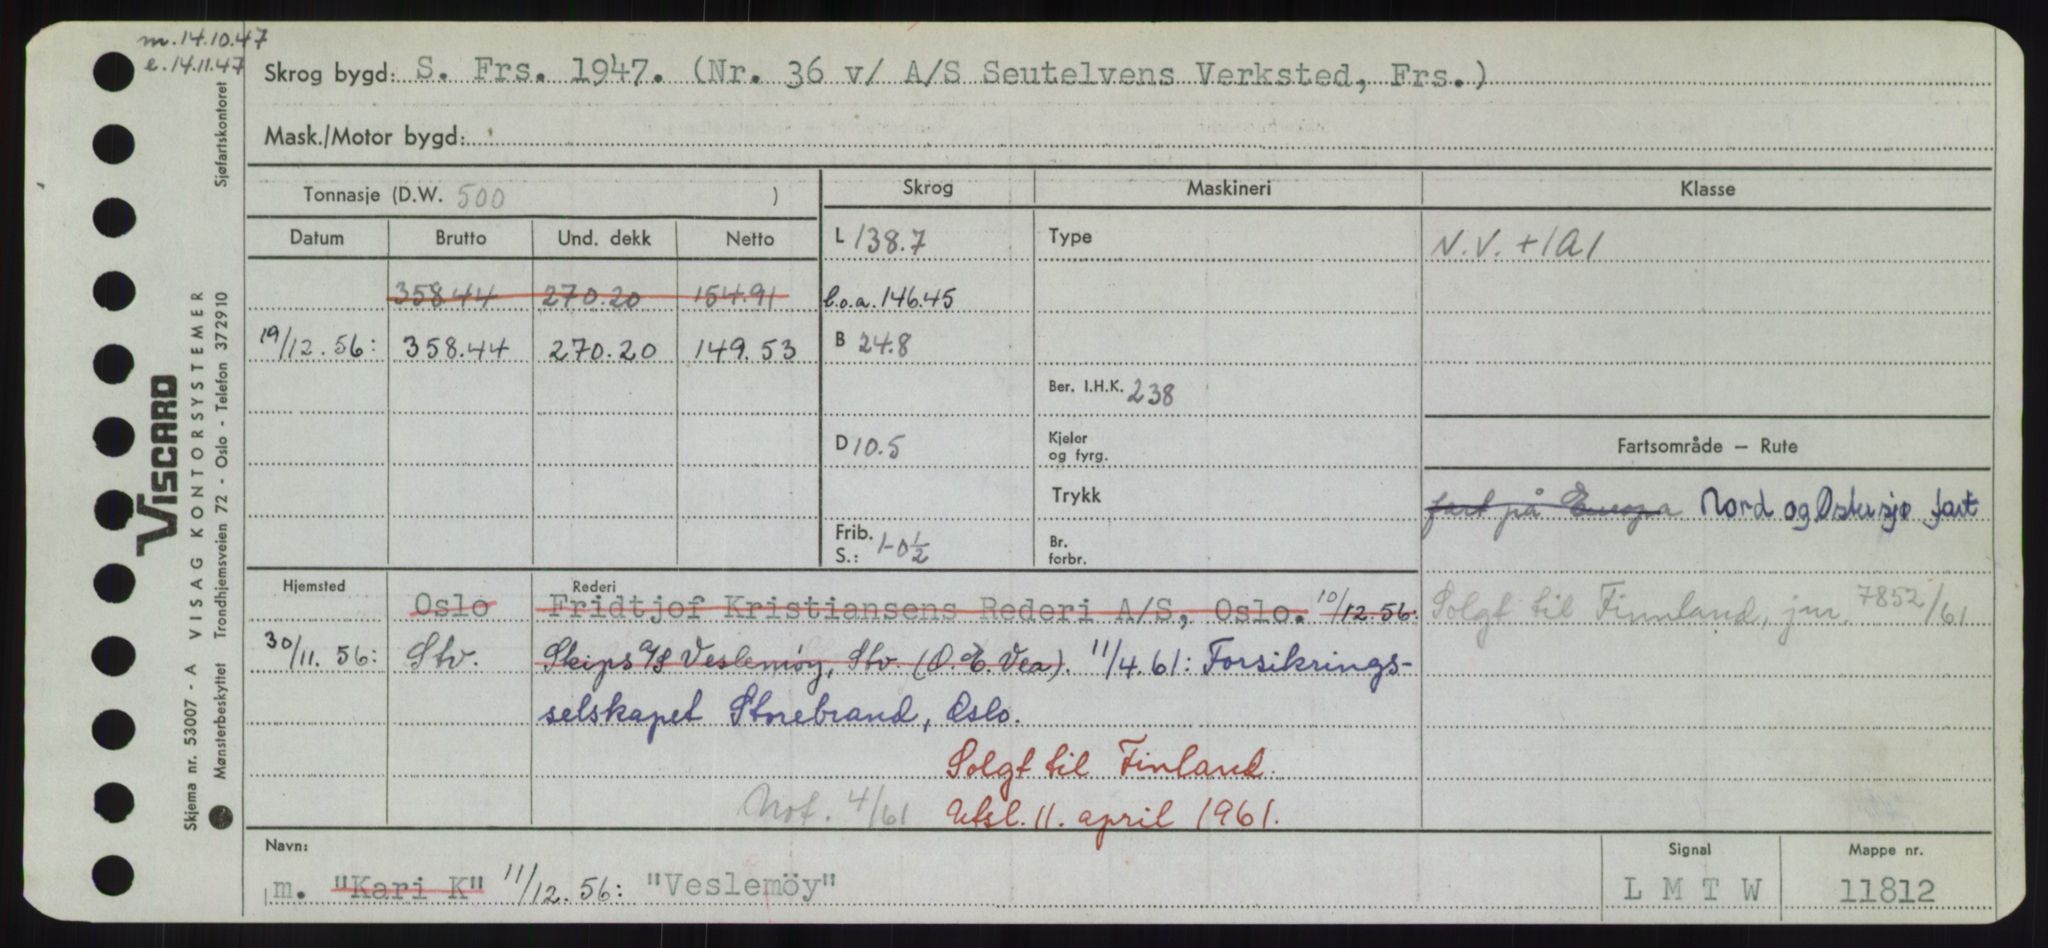 m. 14.10.47
e. 14.11.47
Skrog bygd: S. Frs. 1947. (Nr. 36 v/ A/S Seutelvens Verksted, Frs.)
Mask./Motor bygd:
Tonnasje (D.W. 500 )
Skrog
Maskineri
Klasse
Datum
Brutto
Und. dekk
Netto
L 138.7
Type
N.V. +1A1
358.44
270.20
154.91
l.o.a. 146.45
19/12.56:
358.44
270.20
149.53
B 24.8
Ber. I.H.K. 238
D 10.5
Kjeler
og fyrg.
Fartsområde – Rute
Trykk
fart på Europa Nord og Østersjø fart
Frib.
S.: 1-0½
Br.
forbr.
Hjemsted
Rederi
Oslo
Fridtjof Kristiansens Rederi A/S, Oslo. 10/12.56:
Solgt til Finnland, jnr. 7852/61
30/11.56:
Stv.
Skips A/S Veslemøy, Stv. (O. E. Vea). 11/4.61: Forsikrings-
selskapet Storebrand, Oslo.
Solgt til Finland.
Not. 4/61
Utsl. 11. april 1961.
Navn:
Signal
Mappe nr.
m. "Kari K" 11/12.56: "Veslemöy"
L M T W
11812
Skjema nr. 53007 - A VISAG KONTORSYSTEMER
VISCARD
Mønsterbeskyttet Trondhjemsveien 72 - Oslo - Telefon 372910
Sjøfartskontoret